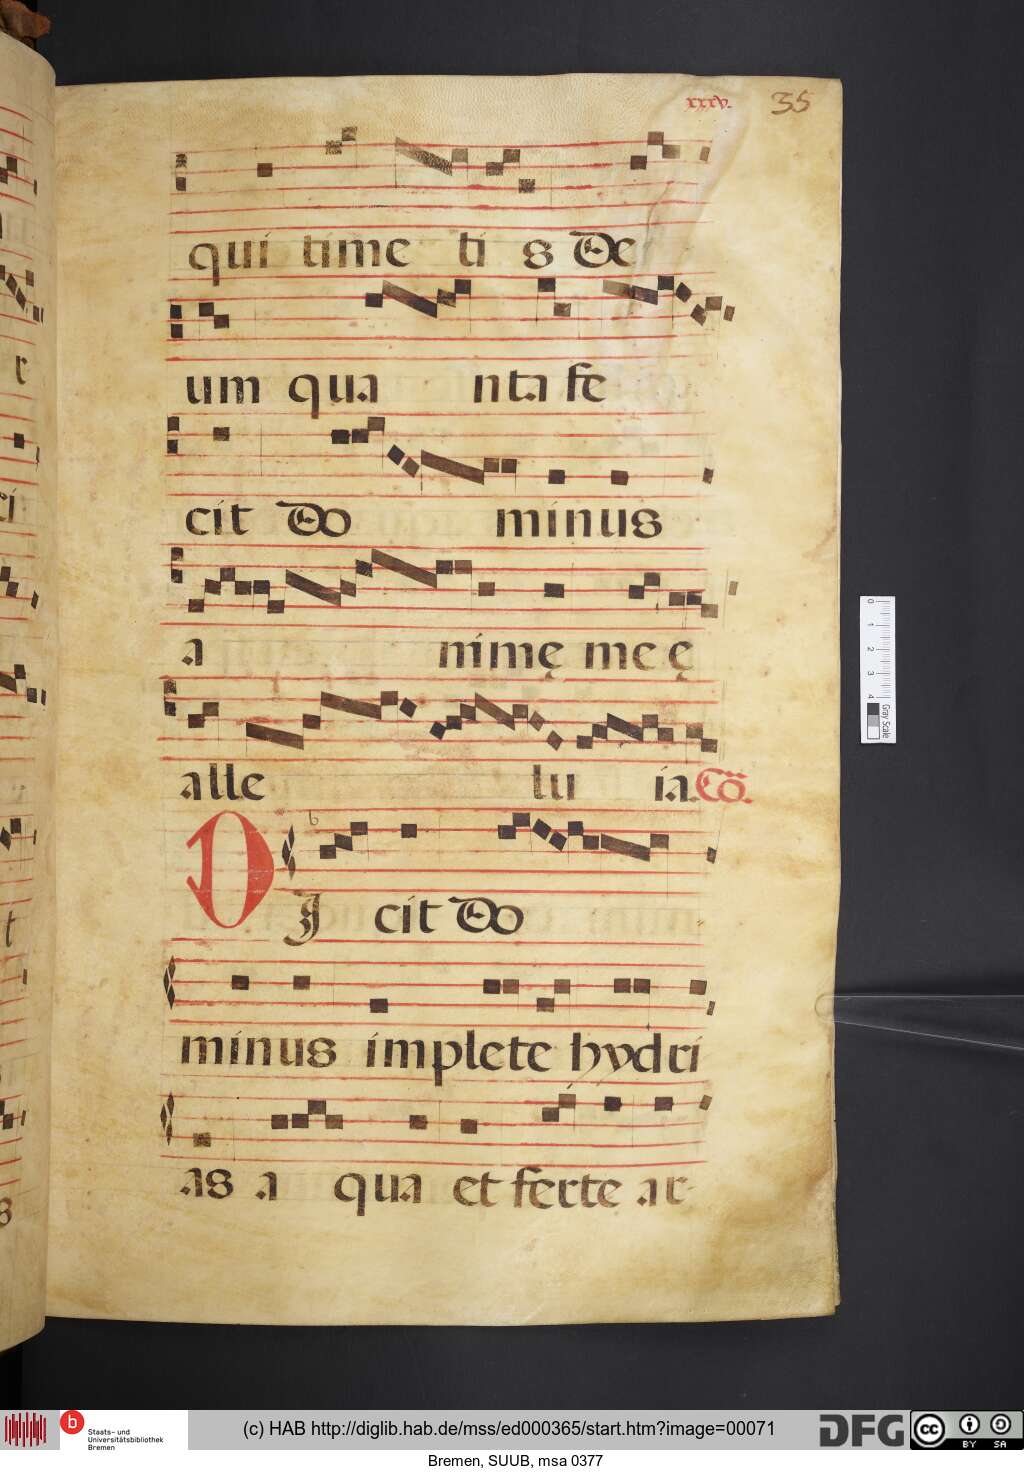 xxxv. 35
qui time ti s De
um qua nta fe
cit Do minus
a nimę me ę
alle lu ia. Cō.
DI cit Do
minus implete hydri
as a qua et ferte ar-
0 1 2 3 4 Gray Scale
b Staats- und Universitätsbibliothek Bremen
(c) HAB http://diglib.hab.de/mss/ed000365/start.htm?image=00071
DFG
cc BY SA
Bremen, SUUB, msa 0377